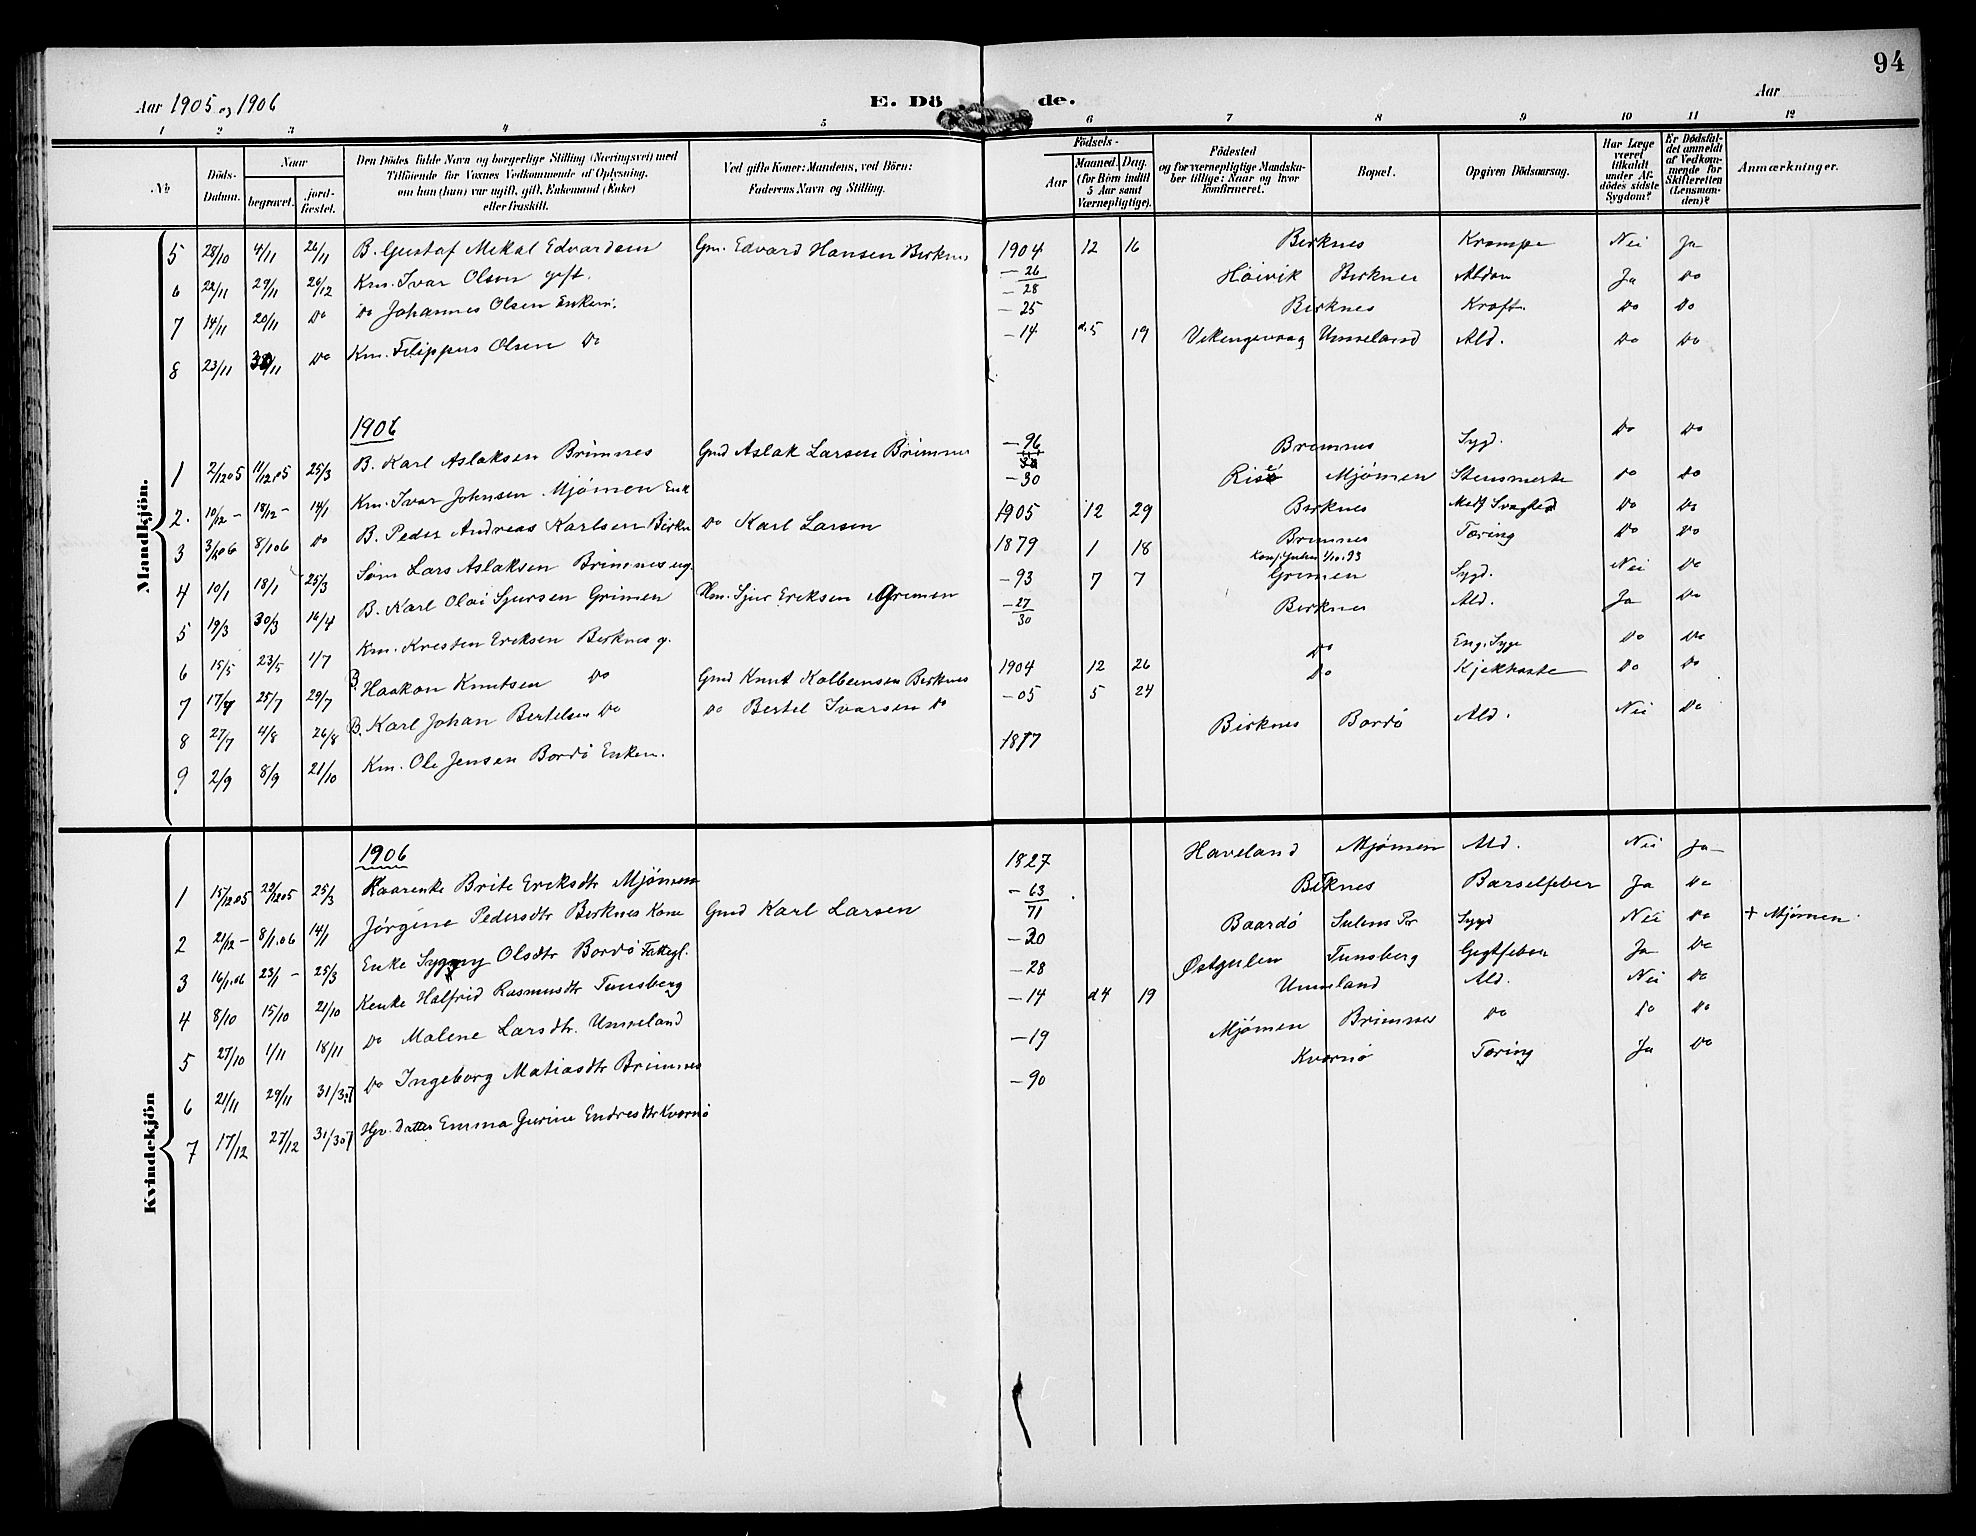 94
Aar 1905 og 1906
E. Dö de.
Aar
1 2 3 4 5 6 7 8 9 10 11 12
No
Döds-Datum.
Naar
begravet.
jordfæstet.
Den Dödes fulde Navn og borgerlige Stilling (Næringsvei) med
Tilföiende for Voxnes Vedkommende af Oplysning,
om han (hun) var ugift, gift, Enkemand (Enke)
eller fraskilt.
Ved gifte Koner: Mandens, ved Börn:
Faderens Navn og Stilling.
Födsels-
Aar
Maaned. Dag.
(for Börn indtil 5 Aar samt Værnepligtige).
Födested
og for værnepligtige Mandskaber tillige: Naar og hvor konfirmeret.
Bopæl.
Opgiven Dödsaarsag.
Har Læge været tilkaldt under Afdödes sidste Sygdom?
Er Dödsfaldet anmeldt af Vedkommende for Skifteretten (Lensmanden)?
Anmærkninger.
Mandkjön.
5 28/10 4/11 26/11 B. Gustaf Mekal Edvardsen Gm. Edvard Hansen Birknes 1904 12 16 Birknes Krampe Nei Ja
6 22/11 29/11 26/12 Km. Ivar Olsen gift. – 26/28 Höivik Birknes Aldom Ja Do
7 14/11 20/11 Do Do Johannes Olsen Enkem. – 25 Birknes Kræft Do Do
8 23/11 30/11 Do Km. Filippus Olsen Do – 14 d. 5 19 Vikingevaag Unneland Ald. Do Do
1906
1 2/12 05 11/12 05 25/3 B. Karl Aslaksen Brimnes Gmd Aslak Larsen Brimnes – 96 Brimnes Sygd. Do Do
2. 10/12 – 18/12 – 14/1 Km. Ivar Johnsen Mjömen Enk – 30 Mjömen Stensmerte Do Do
3 3/1 06 8/1 06 Do B. Peder Andreas Karlsen Birkn Do Karl Larsen 1905 12 29 Birknes Medf Svaghed Do Do
4 10/1 18/1 25/3 Söm Lars Aslaksen Brimnes ug. 1879 1 18 Brimnes Tæring Do Do
5 19/3 30/3 16/4 B. Karl Olai Sjursen Grimen Hm. Sjur Eriksen Grimen – 93 7 7 Grimen Sygd. Nei Do
6 15/5 23/5 1/7 Km. Kresten Eriksen Birknes g. – 27/30 Birknes Ald. Ja Do
7 17/7 25/7 29/7 B. Haakon Knutsen Do Gmd Knut Kolbeinsen Birknes 1904 12 26 Do Eng. Syge Do Do
8 27/7 4/8 26/8 B. Karl Johan Bertelsen Do Do Bertel Ivarsen Do – 05 5 24 Do Kjekhoste Do Do
9 2/9 8/9 21/10 Km. Ole Jensen Bordö Enkem. 1817 Birknes Bordö Ald. Nei Do
Kvindekjön
1906
1 15/12 05 22/12 05 25/3 Kaarenke Brite Eriksdtr Mjömen 1827 Haveland Mjömen Ald. Nei Ja
2 21/12 – 8/1 06 14/1 Jörgine Pedersdtr Birknes Kone Gmd Karl Larsen – 63/71 Birknes Barselfeber Ja Do
3 16/1 06 23/1 – 25/3 Enke Olsdtr Bordö Fattigl. – 30 Baardö Sulens Pr Sygd Nei Do + Mjömen
4 8/10 15/10 21/10 Kenke Halfrid Rasmusdtr Tunsberg – 28 Östgulen Tunsberg Gigtfeber Ja Do
5 27/10 1/11 18/11 Do Malene Larsdtr. Unneland – 14 d 4 19 Unneland Ald. Nei Do
6 21/11 29/11 31/3 07 Do Ingeborg Matiasdtr Brimnes – 19 Mjömen Brimnes Do Do Do
7 17/12 27/12 31/3 07 Hjv. Datter Emma Gurine Endresdtr Kvernö – 90 Kvernö Tæring Ja Do